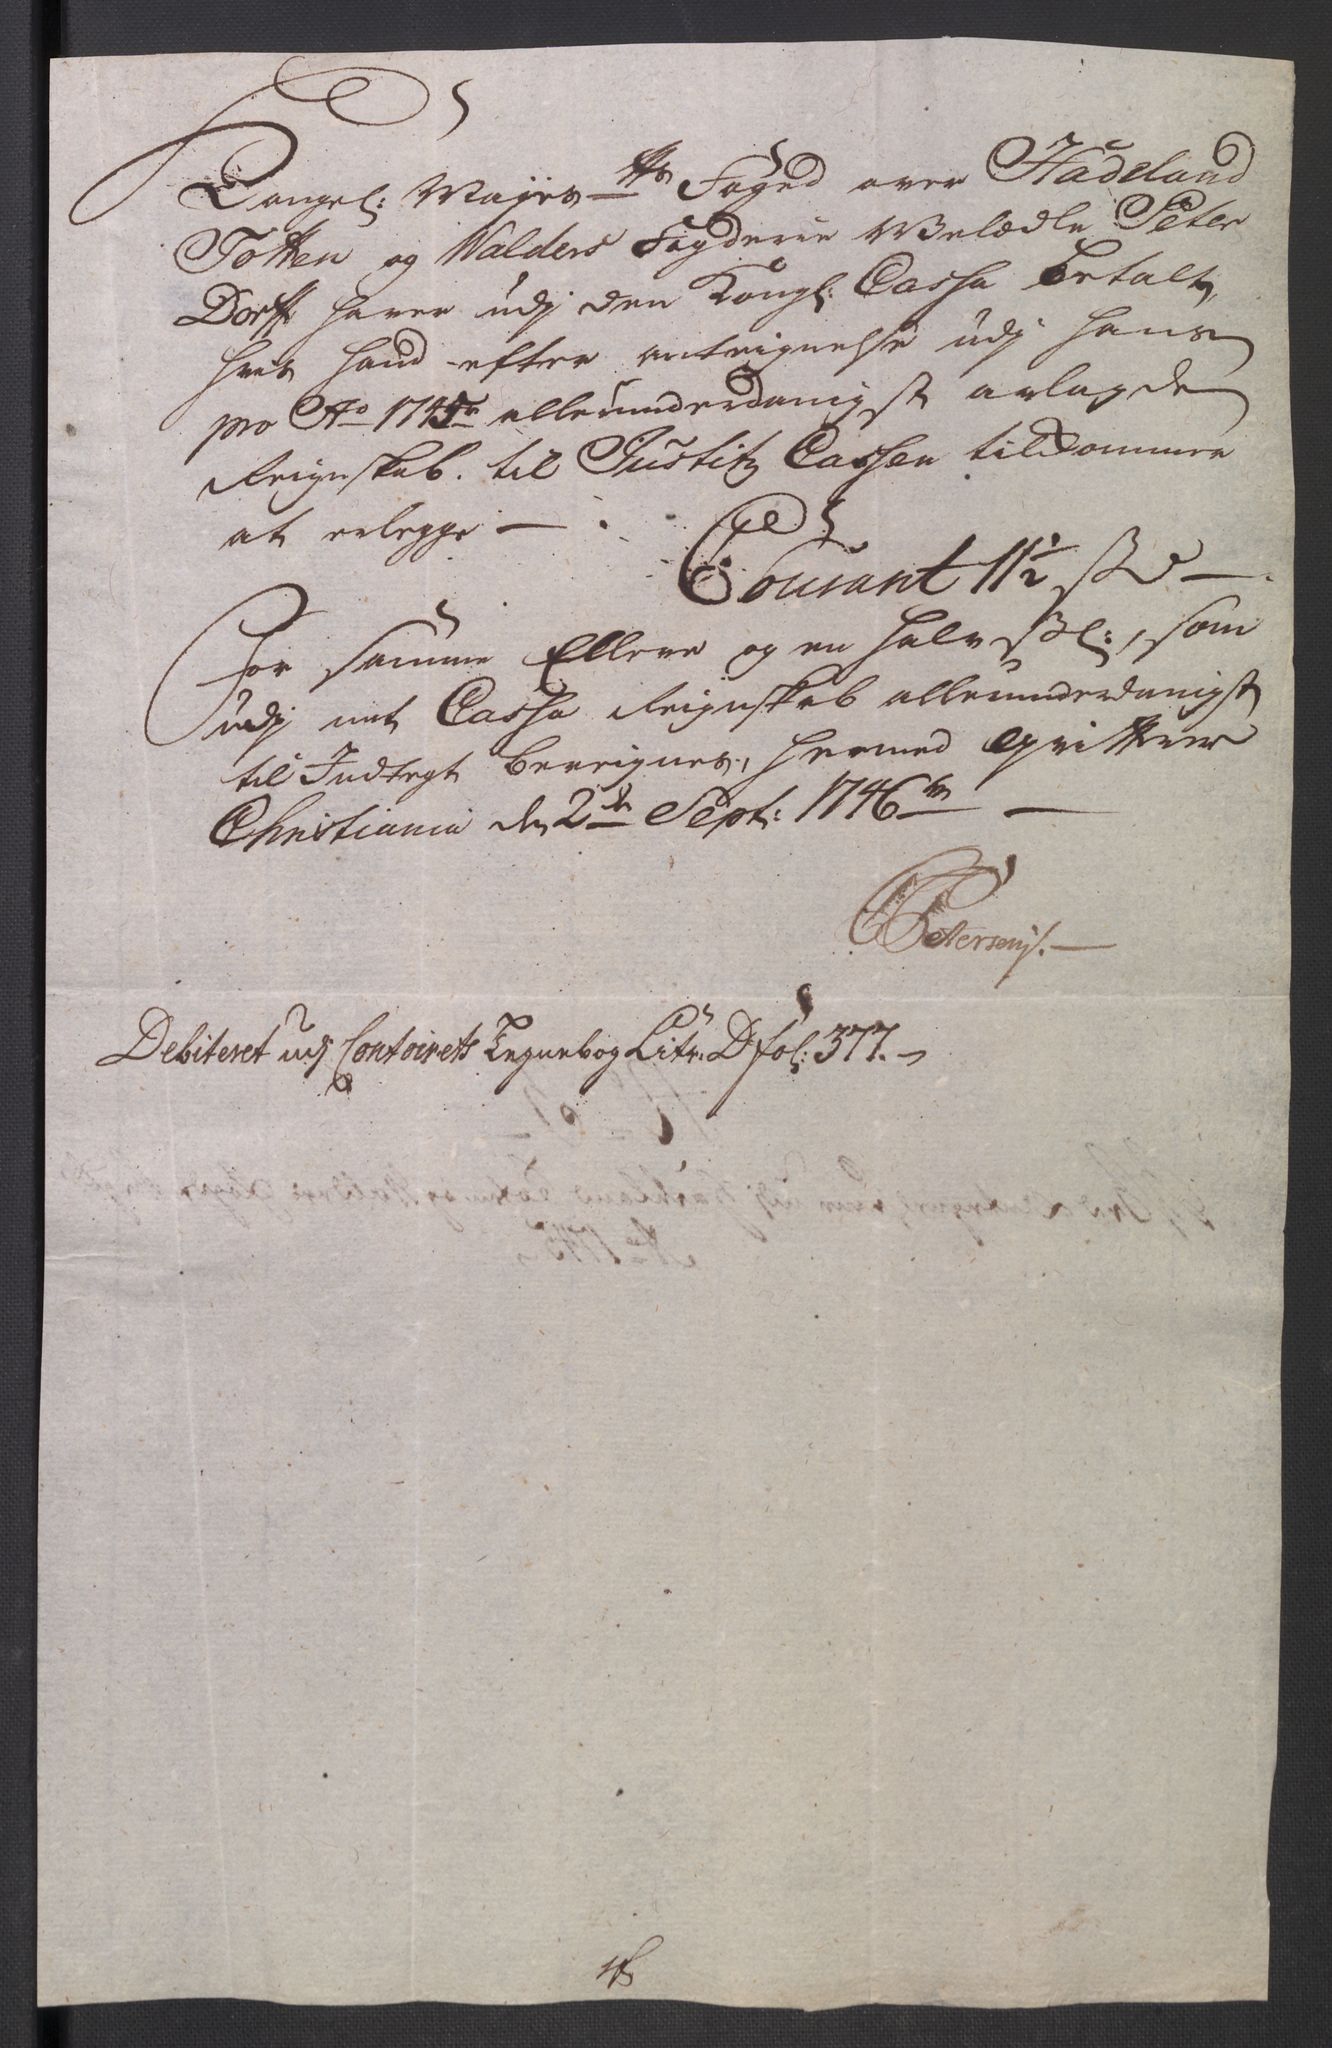 Kongel: Mayes–tts Foged over Hadeland
Totten og Walders Fogderie Welædle Peter
Dorff haver udj den Kongl: Cassa betalt,
hvis hand efter antegnelse udj hans
pro Ao 1745de allerunderdanigst aflagde
Reignskab. til Justitz Cassen tilkommer
at erlegge — .
Courant 11½ sk —
For samme Elleve og en halv sk:, som
udj mit Cassa Reignskab allerunderdanigst
til Indtegt bereignes, hermed qvitterer
Christiania den 2de Sept: 1746tve —
Petersen
Debiteret udj Contoirets Tegnebog Litr: D fol: 377.